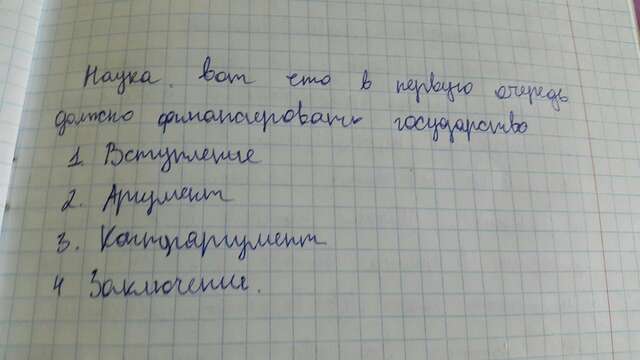 Наука. вот что в первую очередь
должно финансировать государство
1. Вступление
2. Аргумент
3. Контраргумент
4 Заключение.